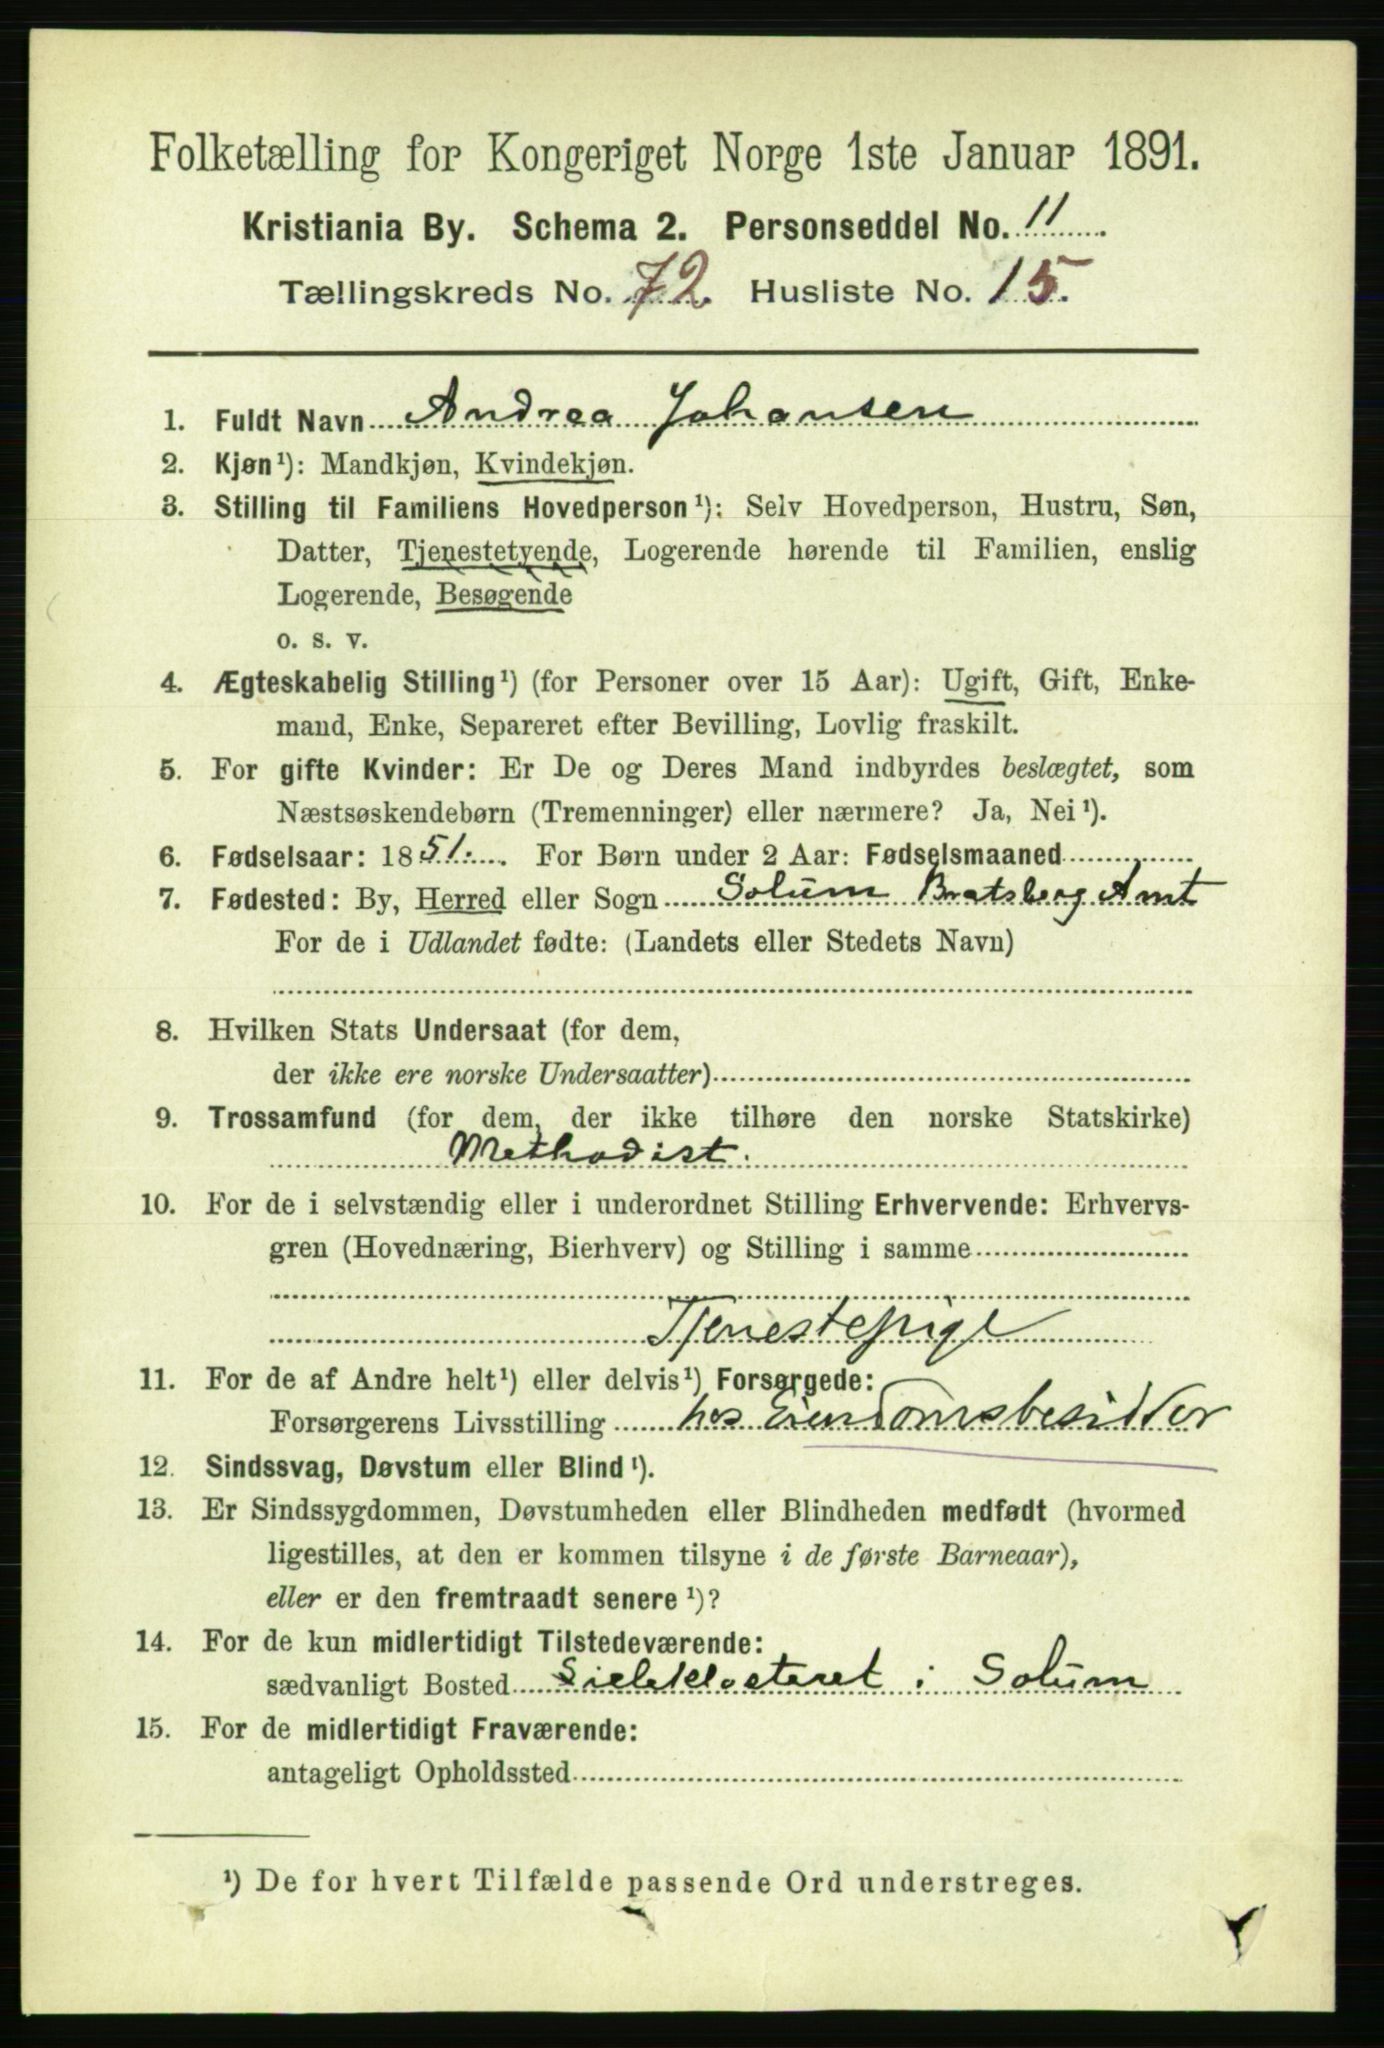 Folketælling for Kongeriget Norge 1ste Januar 1891.
Kristiania By. Schema 2. Personseddel No. 11
Tællingskreds No. 72. Husliste No. 15.
1. Fuldt Navn Andrea Johansen
2. Kjøn¹): Mandkjøn, Kvindekjøn.
3. Stilling til Familiens Hovedperson¹): Selv Hovedperson, Hustru, Søn,
Datter, Tjenestetyende, Logerende hørende til Familien, enslig
Logerende, Besøgende
o. s. v.
4. Ægteskabelig Stilling¹) (for Personer over 15 Aar): Ugift, Gift, Enke-
mand, Enke, Separeret efter Bevilling, Lovlig fraskilt.
5. For gifte Kvinder: Er De og Deres Mand indbyrdes beslægtet, som
Næstsøskendebørn (Tremenninger) eller nærmere? Ja, Nei¹).
6. Fødselsaar: 1851. For Børn under 2 Aar: Fødselsmaaned
7. Fødested: By, Herred eller Sogn Solum Bratsberg Amt
For de i Udlandet fødte: (Landets eller Stedets Navn)
8. Hvilken Stats Undersaat (for dem,
der ikke ere norske Undersaatter)
9. Trossamfund (for dem, der ikke tilhøre den norske Statskirke)
Methodist.
10. For de i selvstændig eller i underordnet Stilling Erhvervende: Erhvervs-
gren (Hovednæring, Bierhverv) og Stilling i samme
Tjenestepige
11. For de af Andre helt¹) eller delvis¹) Forsørgede:
Forsørgerens Livsstilling hos Eiendomsbesidder
12. Sindssvag, Døvstum eller Blind¹).
13. Er Sindssygdommen, Døvstumheden eller Blindheden medfødt (hvormed
ligestilles, at den er kommen tilsyne i de første Barneaar),
eller er den fremtraadt senere¹)?
14. For de kun midlertidigt Tilstedeværende:
sædvanligt Bosted i Solum
15. For de midlertidigt Fraværende:
antageligt Opholdssted
¹) De for hvert Tilfælde passende Ord understreges.